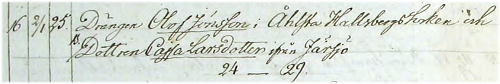 16 2/1 25. Drängen Olof Jönsson i Åhlsta Hallsbergs Soken och
D. Dottren Cajsa Larsdotter ifrån Järsjö
24 — 29.